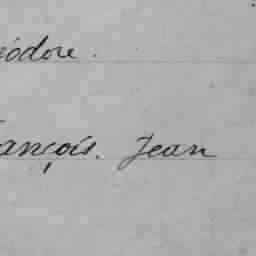 éodore.
rançois. Jean